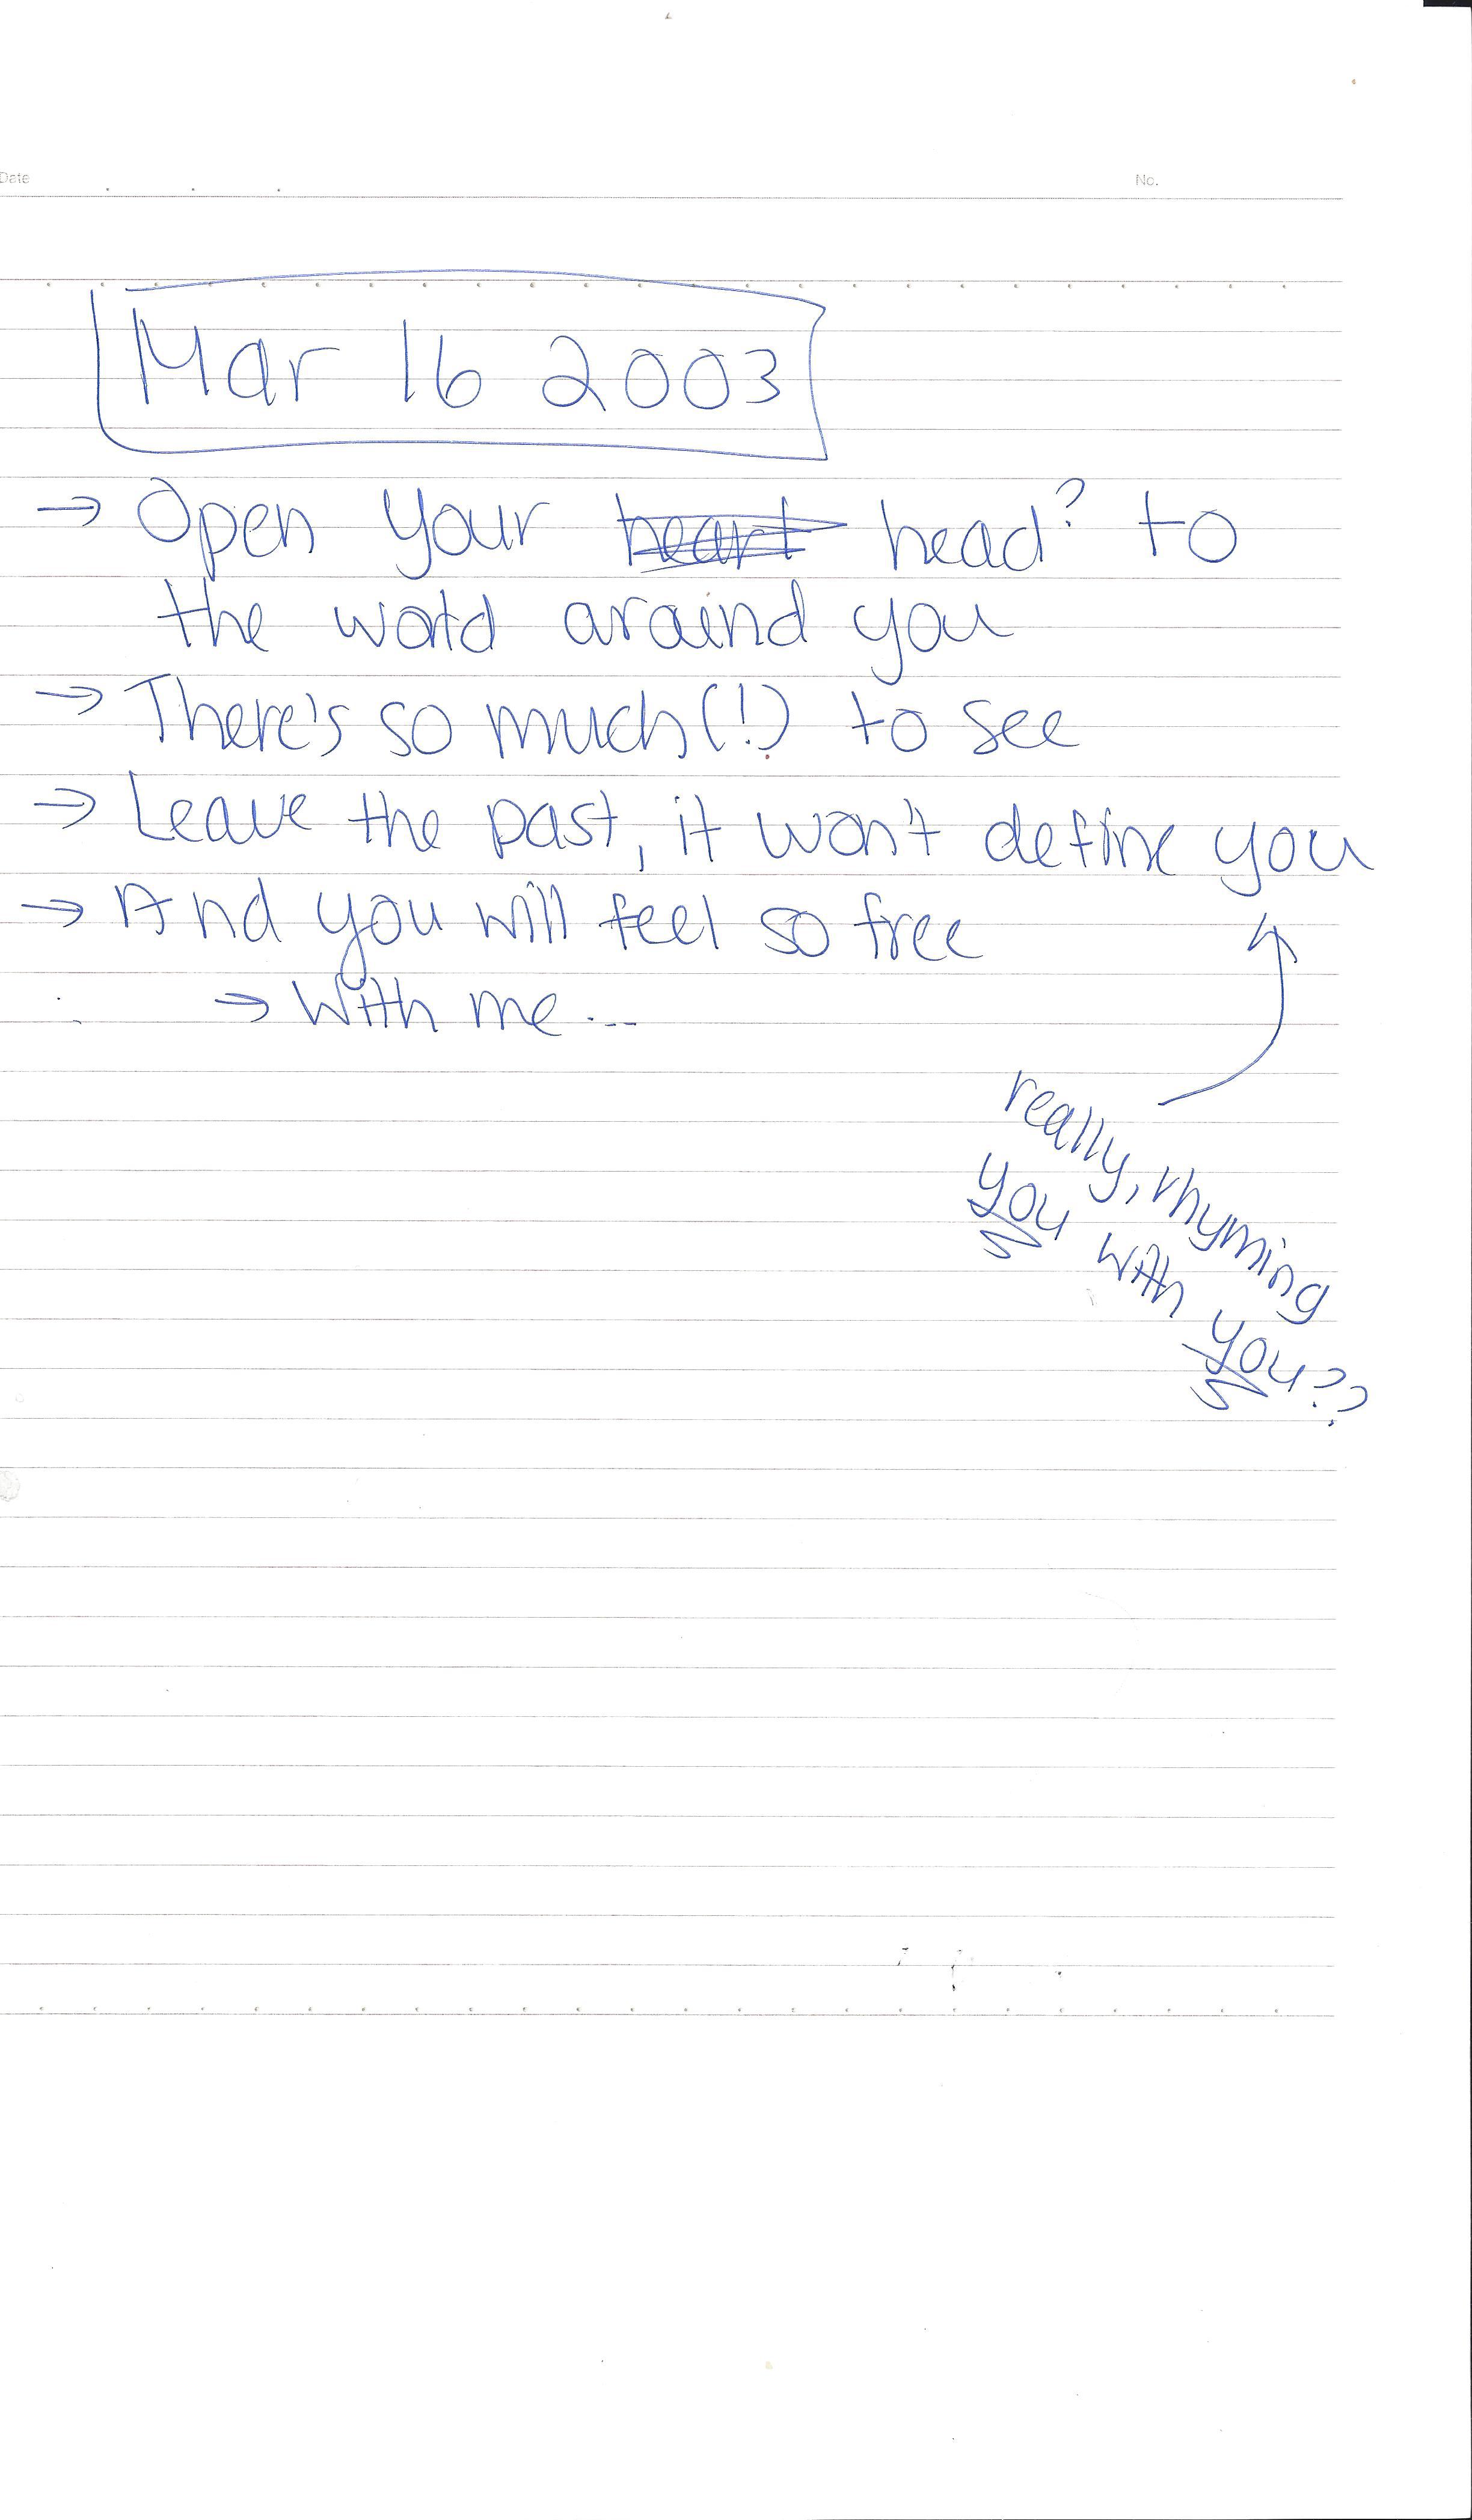 Date No.
Mar 16 2003
→ Open your ~~heart~~ head? to
the world around you
→ There's so much(!) to see
→ Leave the past, it won't define you
→ And you will feel so free
→ With me...
really, rhyming
you with you??